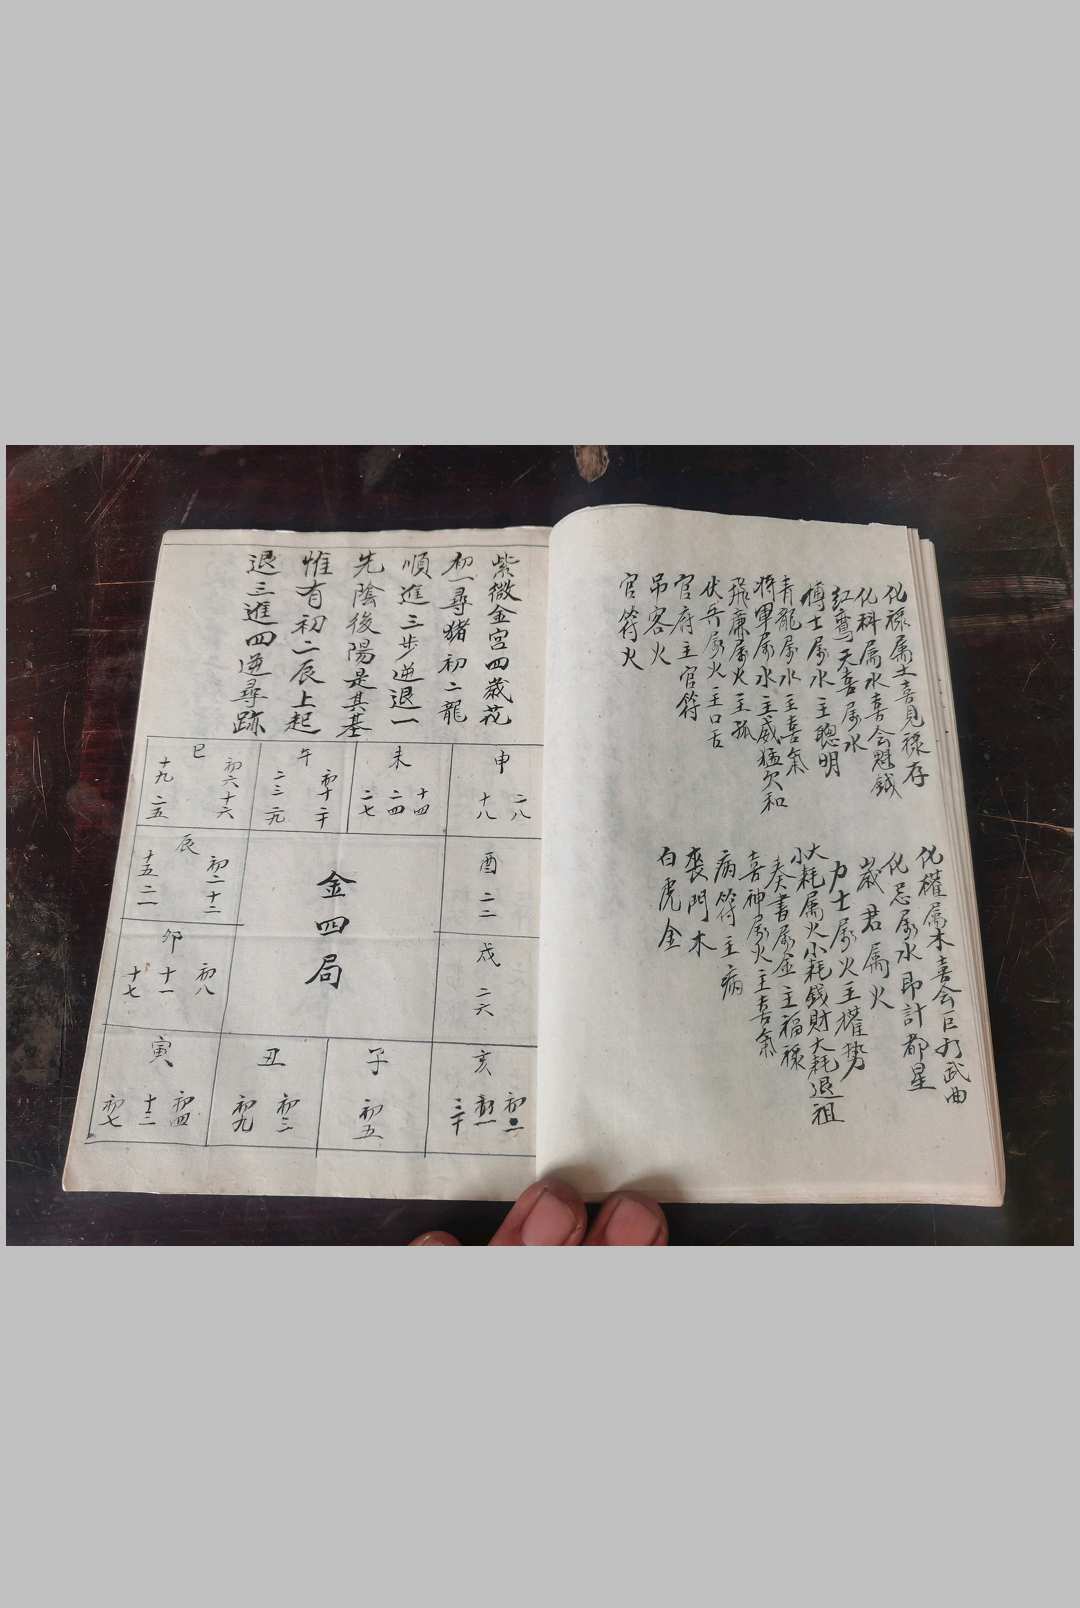 化祿属土喜見祿存
化科属水喜会魁鉞
紅鸞天喜属水
博士属水主聰明
青龍属水主喜氣
將軍属水主威猛欠和
飛廉属火主孤
伏兵属火主口舌
官府主官符
吊客火
官符火
化權属木喜会巨门武曲
化忌属水即計都星
歲君属火
力士属火主權势
大耗属火小耗錢財大耗退祖
小
奏書属金主福祿
喜神属火主喜氣
病符主病
喪門木
白虎金
紫微金宫四歲花
初一尋猪初二龍
順進三步逆退一
先陰後陽是其基
惟有初二辰上起
退三進四逆尋跡
巳
初六十六
十九二五
午
初十二十
二三二九
未
十四
二四
二七
申
二八
十八
辰
初二十二
十五二一
金四局
酉
二二
卯
初八
十一
十七
戌
二六
寅
初四
十三
初七
丑
初三
初九
子
初五
亥
初一
三十